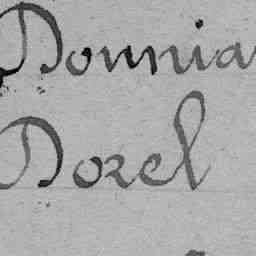 Donnia
Dorel